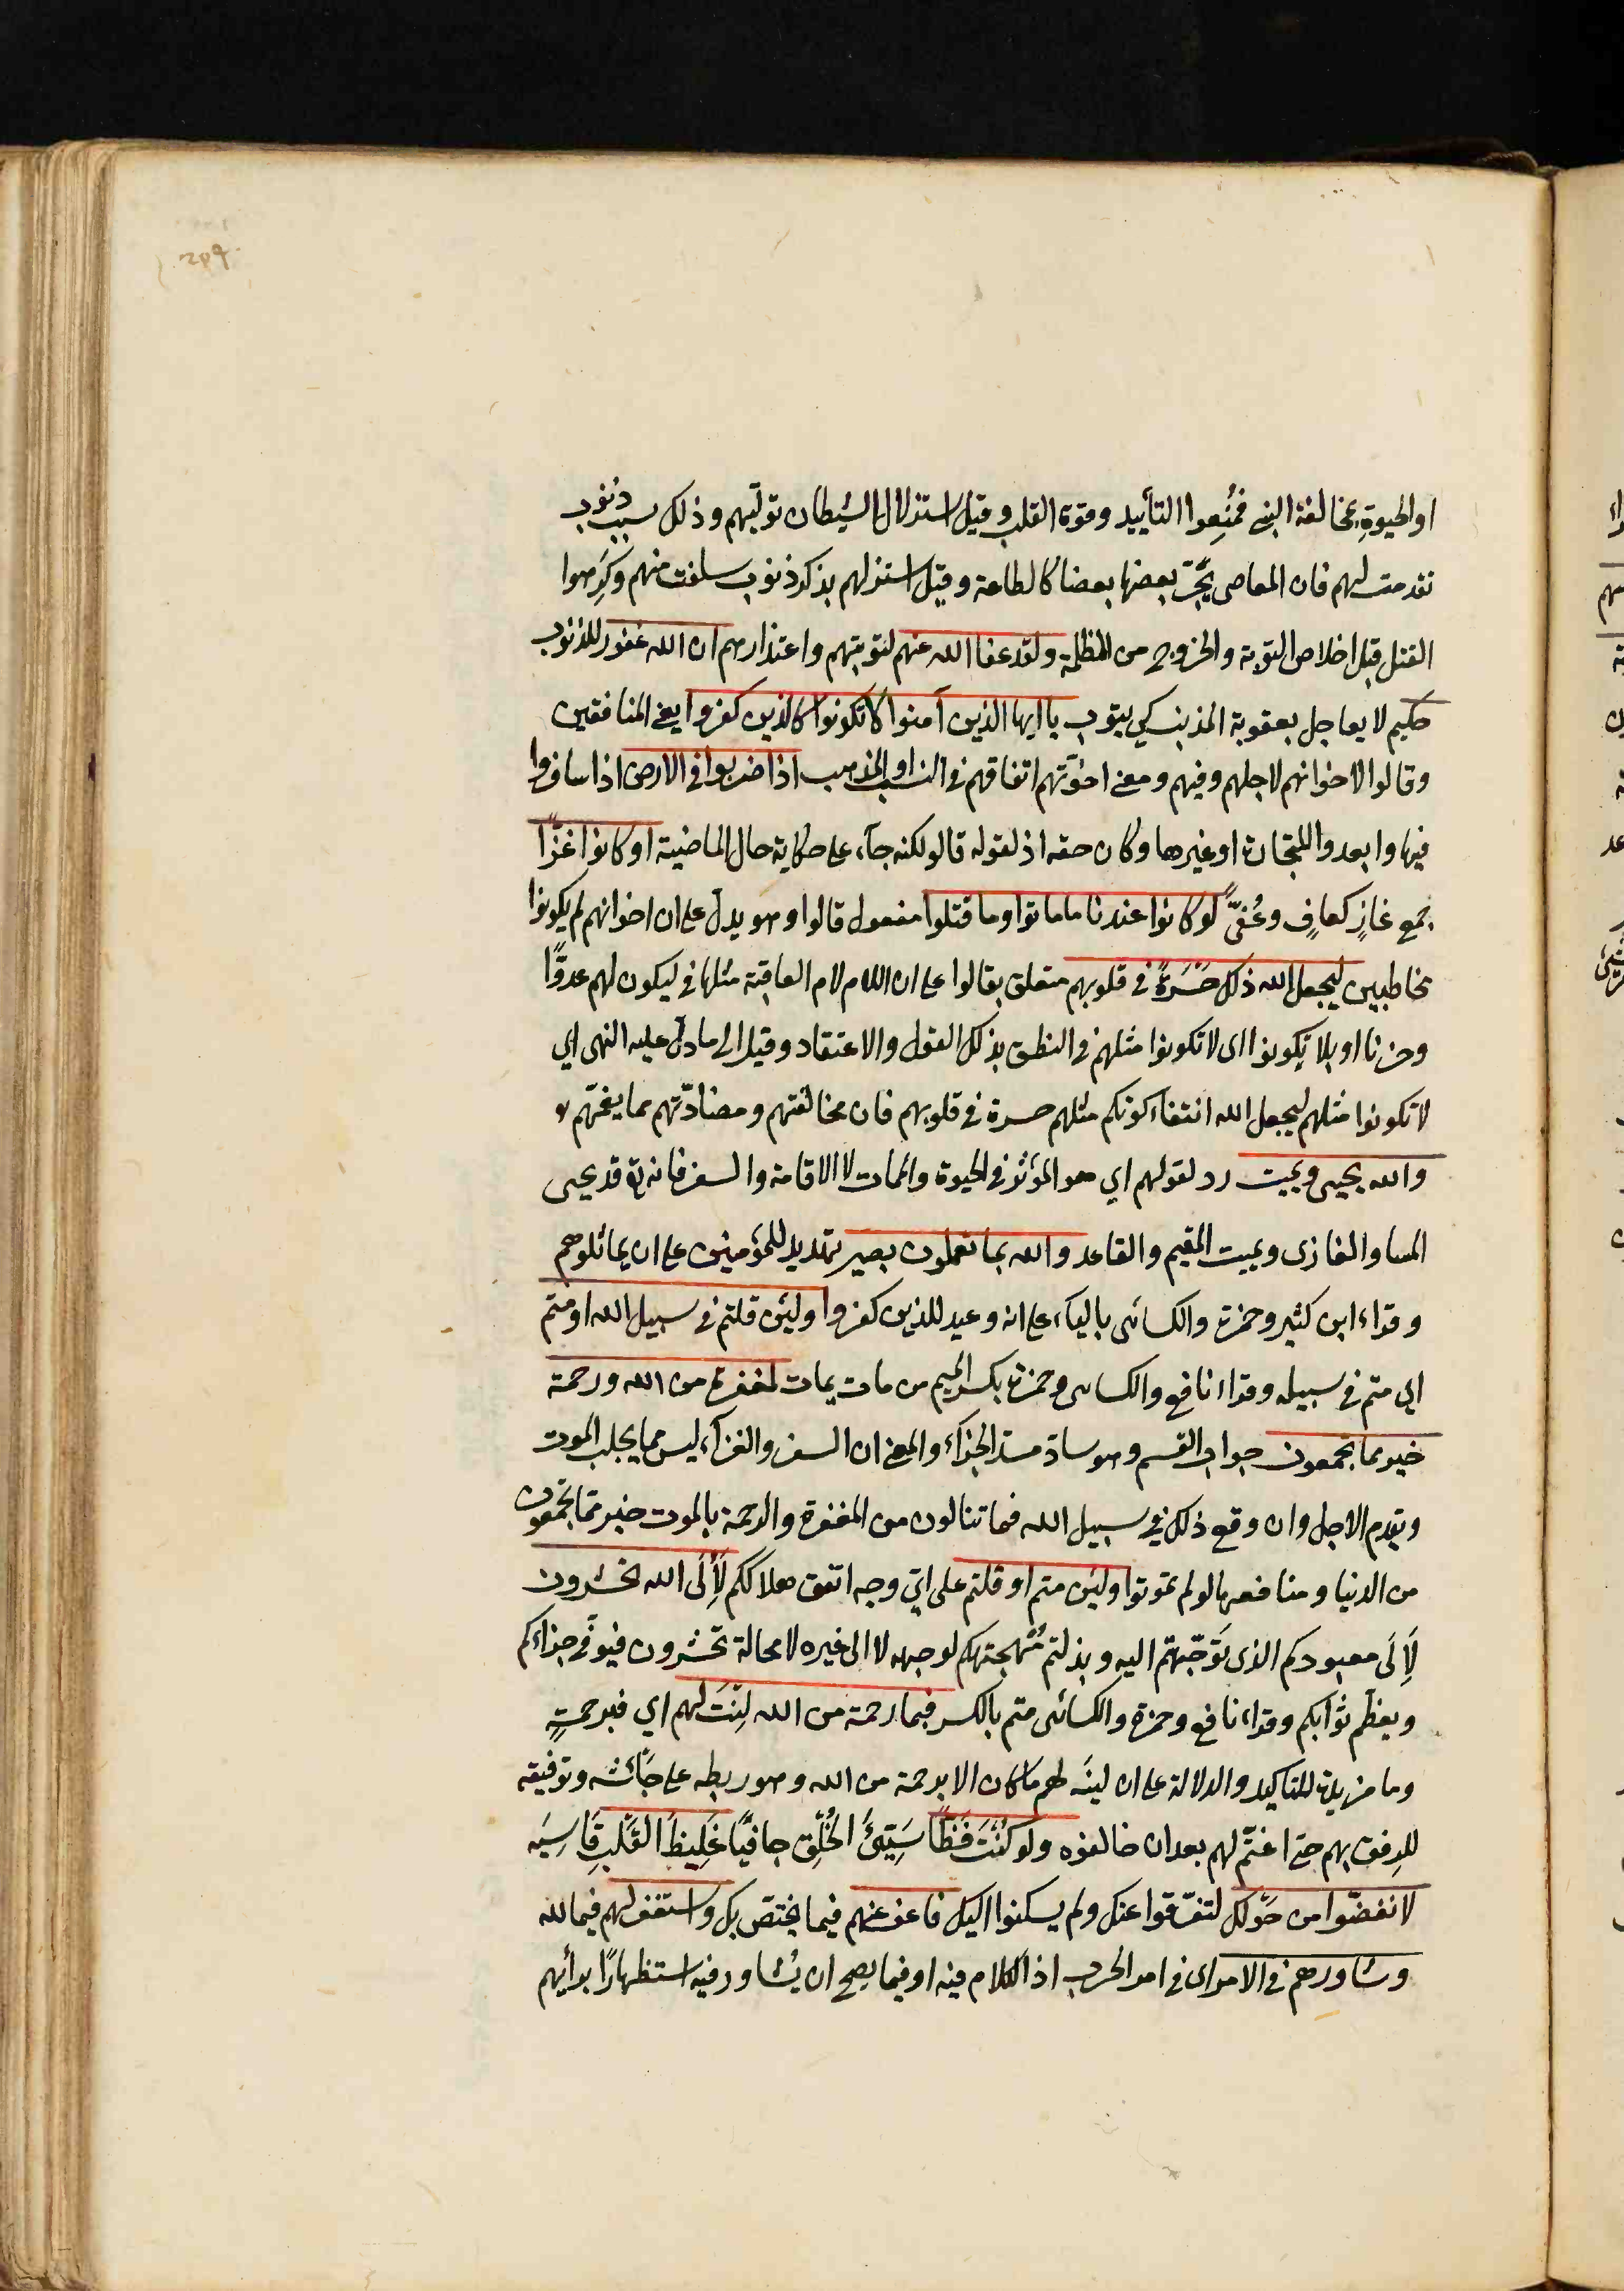 او الحيوة بمخالفة النبى فمُنِعوا التأييد وقوة القلب وقيل استزلال الشيطان توليهم وذلك بسبب ذنوب
تقدمت لهم فان المعاصى يَجُرّ بعضها بعضا كالطاعة وقيل استزلهم بذكر ذنوب سلفت منهم وكَرِهوا
القتل قبل اخلاص التوبة والخروج من المظلمة ولقد عفا الله عنهم لتوبتهم واعتذارهم ان الله غفور للذنوب
حكيم لا يعاجل بعقوبة المذنب كي يتوب يا ايها الذين آمنوا لا تكونوا كالذين كفروا يعنى المنافقين
وقالوا لاخوانهم لاجلهم وفيهم ومعنى اخوّتهم اتفاقهم فى النسب او المذهب اذا ضربوا فى الارض اذا سافروا
فيها وابعدوا للتجارة او غيرها وكان حقه اذ لقوله قالوا لكنه جآء على حكاية حال الماضية او كانوا غزًّا
جمع غازٍ كعافٍ وعُفىًّ لو كانوا عندنا ما ماتوا وما قتلوا مفعول قالوا وهو يدل على ان اخوانهم لم يكونوا
مخاطبين ليجعل الله ذلك حَسْرَةً فى قلوبهم متعلق بقالوا على ان اللام لام العاقبة مثلها فى ليكون لهم عدوًّا
وحزنا او بلا تكونوا اى لا تكونوا مثلهم فى النطق بذلك القول والاعتقاد وقيل الى ما دل عليه النهى اي
لا تكونوا مثلهم ليجعل الله انتفآء كونكم مثلهم حسرة فى قلوبهم فان مخالفتهم ومضادّتهم مما يغمّهم
والله يحيى ويميت رد لقولهم اي هو المؤثر فى الحيوة والممات لا الاقامة والسفر فانه تع قد يحيى
المسا والغازى ويميت المقيم والقاعد والله بما تعملون بصير تهديد للمؤمنين على ان يماثلوهم
وقراء ابن كثير وحمزة والكسائى باليآء على انه وعيد للذين كفروا ولئن قلتم فى سبيل الله او متم
اي متم فى سبيله وقراء نافع والكساى وحمزة بكسر الميم من مات يمات لمغفرة من الله ورحمة
خير مما تجمعون جواب القسم وهو ساد مسد الجزآء والمعنى ان السفر والغزآء ليس مما يجلب الموت
ويقدم الاجل وان وقع ذلك فى سبيل الله فما تنالون من المغفرة والرحمة بالموت خير مما تجمعون
من الدنيا ومنافعها لو لم تموتوا ولئن متم او قلتم على اىّ وجه اتفق هلاككم لَأِلَى الله تحشرون
لَأِلَى معبودكم الذى تَوَجّهتم اليه وبذلتم مُهجتكم لوجهه لا الى غيره لا محالة تحشرون فيوفّى جزاءكم
ويعظّم ثوابكم وقراء نافع وحمزة والكسائى متم بالكسر فبما رحمة من الله لِنْتَ لهم اي فبرحمةٍ
وما مزيدة للتاكيد والدلالة على ان لينَه لهم ما كان الا برحمة من الله وهو ربطه على جأشه وتوفيقه
للرفق بهم حتى اغتّم لهم بعد ان خالفوه ولو كُنْتَ فَظًّا سَيِّئَ الخُلْقِ جافيًا غَلِيظَ القَلْبِ قَاسِيَه
لانفضّوا من حَوْلك لتفرّقوا عنك ولم يسكنوا اليك فاعف عنهم فيما يختص بك واستغفر لهم فيما لله
وشاورهم فى الامر اى فى امر الحرب اذ الكلام فيه او فيما يصح ان يُشاور فيه استظهارًا برأيهم